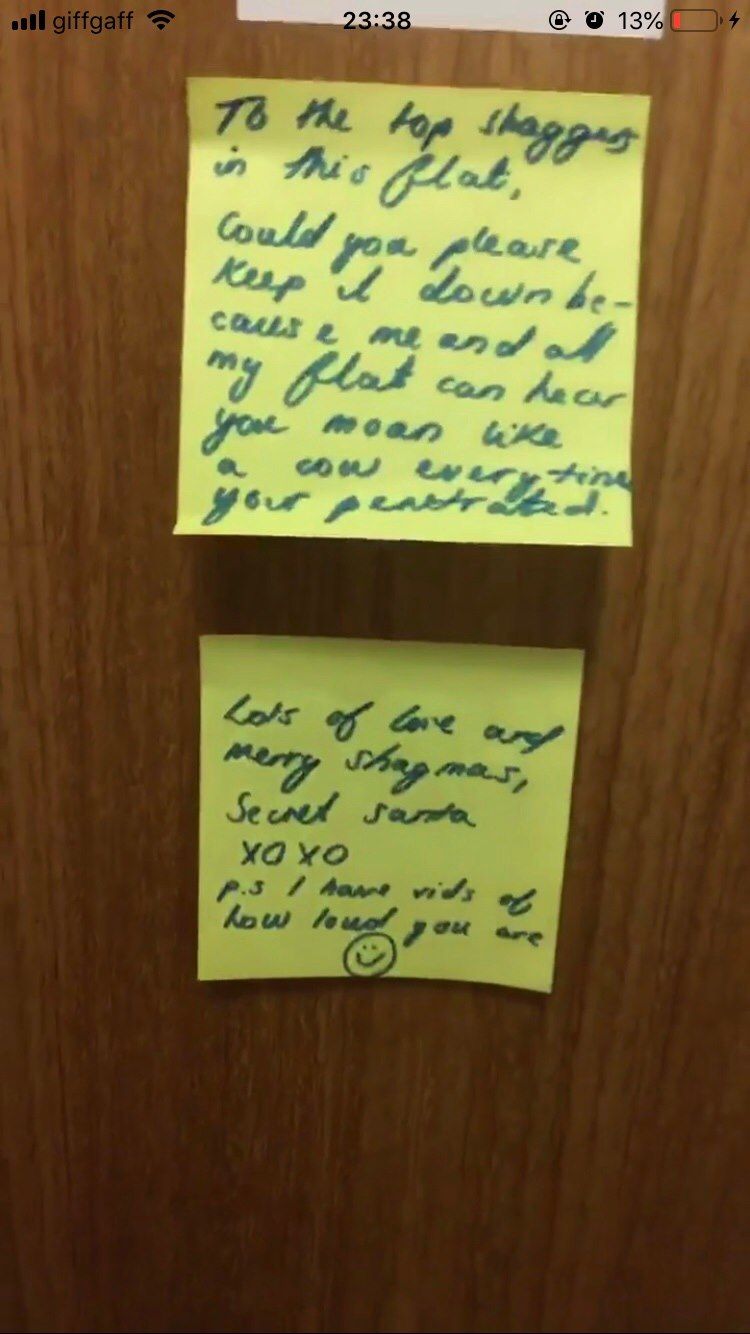 giffgaff 23:38 13%
To the top shaggers
in this flat,
Could you please
keep it down be-
cause me and all
my flat can hear
you moan like
a cow every time
your penetrated.
Lots of love and
merry shagmas,
Secret santa
XOXO
p.s I have vids of
how loud you are